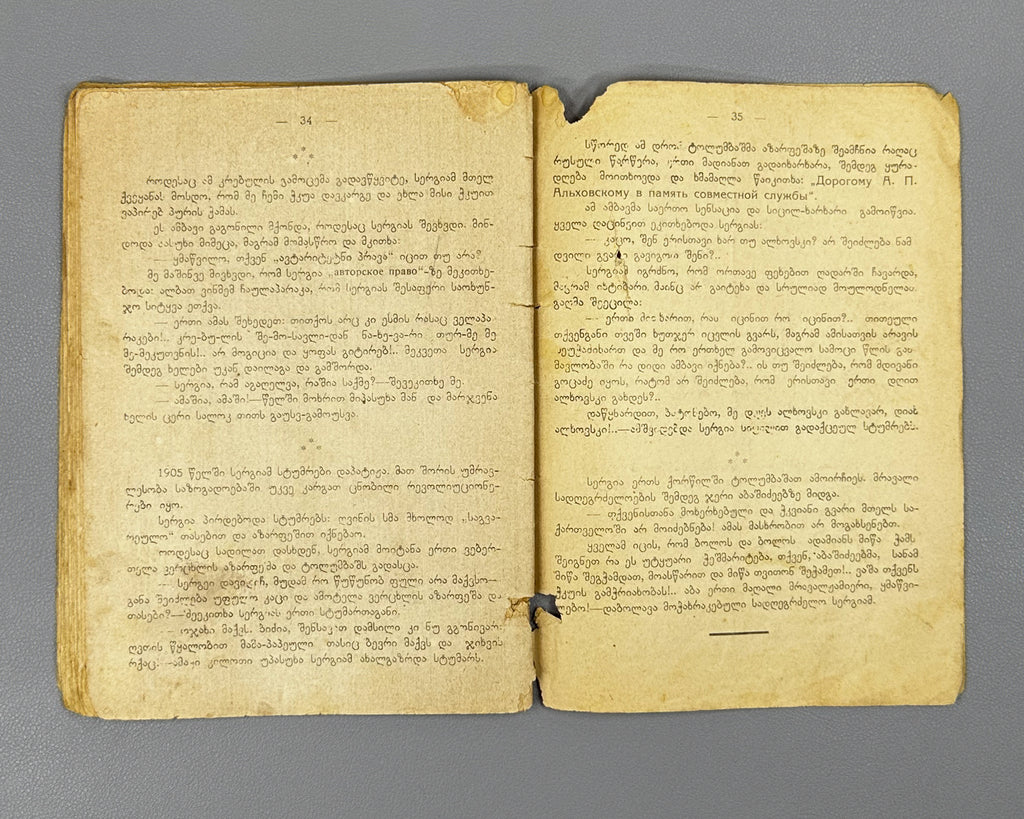 — 34 —
* * *
როდესაც ამ კრებულის გამოცემა გადავწყვიტე, სერგიამ მთელ
ქვეყანას მოსდო, რომ მე ჩემი ჭკუა დავკარგე და ეხლა მისი ჭკუით
ვაპირებ პურის ჭამას.
ეს ამბავი გაგონილი მქონდა, როდესაც სერგიას შევხვდი. მინ-
დოდა პასუხი მიმეცა, მაგრამ მომასწრო და მკითხა:
— ყმაწვილო, თქვენ „ავტარიტეტნი პრავა“ იცით თუ არა?
მე მაშინვე მივხვდი, რომ სერგია „авторское право“-ზე მეკითხე-
ბოდა: ალბათ ვინმემ ჩაულაპარაკა, რომ სერგიას შესაფერი საოხუნ-
ჯო სიტყვა ეთქვა.
— ერთი ამას შეხედეთ: თითქოს არც კი ესმის რასაც ველაპა-
რაკები!.. კრე-ბუ-ლის შე-მო-სავლი-დან ნა-ხე-ვა-რი თურ-მე მე
მე-მეკუთვნის!.. არ მოგიცია და ყოფას გიტირებ!..
სერგია
შემდეგ ხელები უკან დაილაგა და გაშორდა.
— სერგია, რამ აგაღელვა, რაშია საქმე?—შევეკითხე მე.
— ამაშია, ამაში!—წელში მოხრით მიპასუხა მან და მარჯვენა
ხელის ცერი სალოკ თითს გაუსვ-გამოუსვა.
* * *
1905 წელში სერგიამ სტუმრები დაპატიჟა. მათ შორის უმრავ-
ლესობა საზოგადოებაში უკვე კარგათ ცნობილი რევოლიუციონე-
რები იყო.
სერგია პირდებოდა სტუმრებს: ღვინის სმა მხოლოდ „საგვა-
რეულო“ თასებით და აზარფეშით იქნებაო.
როდესაც სადილათ დასხდენ, სერგიამ მოიტანა ერთი ვებერ-
თელა ვერცხლის აზარფეშა და ტოლუმბაშს გადასცა.
— სერგი დავიღრჩ, მუდამ რო წუწუნობ ფული არა მაქვსო—
განა შეიძლება უფულო კაცი და ამოტელა ვერცხლის აზარფეშა და
თასები?—შეეკითხა სერგიას ერთი სტუმართაგანი.
— ოჯახი მაქვს. ბიძია, შენსავით დამსილი კი ნუ გგონივარ:
ღვთის წყალობით მამა-პაპეული თასიც ბევრი მაქვს და ჯიხვის
რქაც. —ამაყი კილოთი უპასუხა სერგიამ ახალგაზრდა სტუმარს.
— 35 —
სწორედ ამ დროს ტოლუმბაშმა აზარფეშაზე შეამჩნია რაღაც
რუსული წარწერა, ერთი მადიანათ გადაიხარხარა, შემდეგ ყურა-
დღება მოითხოვდა და ხმამაღლა წაიკითხა: „Дорогому А. П.
Альховскому в память совместной службы“.
ამ ამბავმა საერთო სენსაცია და სიცილ-ხარხარი გამოიწვია.
ყველა დაცინვით ეკითხებოდა სერგიას:
— კაცო, შენ ერისთავი ხარ თუ ალხოვსკი? არ შეიძლება ნამ
დვილი გვარი გავიგოთ შენი?..
სერგიამ იგრძნო, რომ ორთავე ფეხებით ღადარში ჩავარდა,
მაგრამ იხტიბარი მაინც არ გაიტეხა და სრულიად მოულოდნელათ
გაღმა შეეცილა:
— ერთი მითხარით, რას იცინით რო იცინით?.. თითეული
თქვენგანი თვეში ხუთჯერ იცვლის გვარს, მაგრამ ამისათვის არავის
და მე რო ერთხელ გამოვიცვალო სამოცი წლის გან
მავლობაში რა დიდი ამბავი იქნება?.. ის თუ შეიძლება, რომ მდივანი
გოცაძე იყოს, რატომ არ შეიძლება, რომ ერისთავი ერთი დღით
ალხოვსკი გახდეს?..
დაწყნარდით, ბატონებო, მე დღეს ალხოვსკი გახლავარ, დიახ
ალხოვსკი!..—ამშვიდებდა სერგია სიცილით გადაქცეულ სტუმრებს.
* * *
სერგია ერთს ქორწილში ტოლუმბაშათ ამოირჩიეს. მრავალი
სადღეგრძელოების შემდეგ ჯერი აბაშიძეებზე მიდგა.
— თქვენისთანა მოხერხებული და ჭკვიანი გვარი მთელს სა-
ქართველოში არ მოიძებნება! ამას მასხრობით არ მოგახსენებთ.
ყველამ იცის, რომ ბოლოს და ბოლოს ადამიანს მიწა ჭამს
შეიგნეთ რა ეს უტყუარი ჭეშმარიტება, თქვენ, აბაშიძეებმა, სანამ
მიწა შეგჭამდათ, მოასწარით და მიწა თვითონ შეჭამეთ!.. ვაშა თქვენს
ჭკუის გამჭრიახობას!.. აბა ერთი მაღალი მრავალჟამიერი, ყმაწვი-
ლებო!—დაბოლავა მოჭახრაკებული სადღეგრძელო სერგიამ.